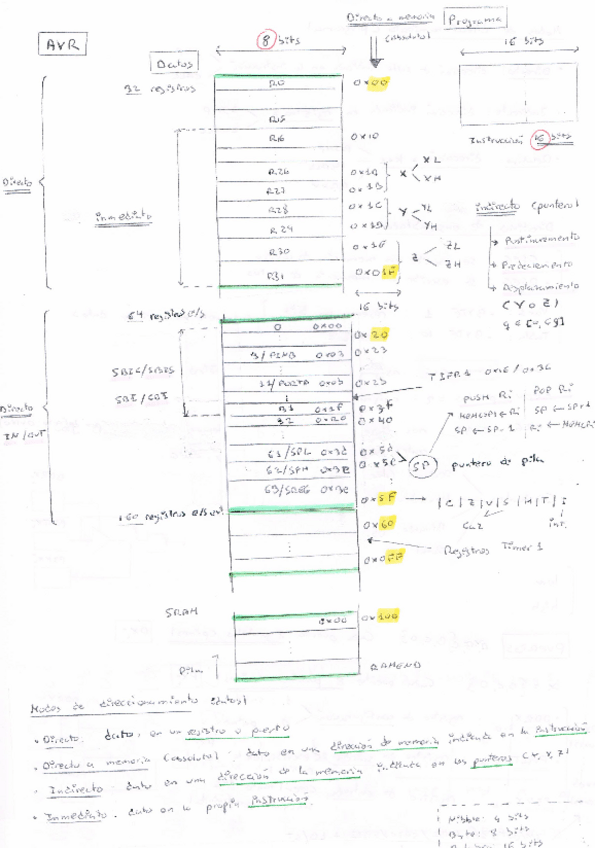 Directo a memoria
(absoluto)
Programa
AVR
8 bits
16 bits
Datos
32 registros
R0
0x00
R15
R16
0x10
Instrucción 16 bits
Directo
inmediato
R26
0x1A
X
XL
XH
R27
0x1B
R28
0x1C
Y
YL
YH
R29
0x1D
R30
0x1E
Z
ZL
ZH
R31
0x01F
indirecto (puntero)
Postincremento
Predecremento
Desplazamiento
(Y o Z)
16 bits
64 registros e/s
0 0x00
0x20
SBIC/SBIS
SBI/CBI
3/PINB 0x03
0x23
0x25
TIFR1 0x16 / 0x36
Directo
IN/OUT
31 0x1F
0x3F
32 0x20
0x40
PUSH Ri
POP Ri
SP ← SP-1
61/SPL 0x3D
62/SPH 0x3E
SP
puntero de pila
63/SREG
0x5F
|C|Z|V|S|H|T|I
int.
160 registros e/s ext
0x60
Registros Timer 1
0x0FF
SRAM
0x00
0x100
Pila
RAMEND
Modos de direccionamiento (datos)
• Directo: dato, en un registro o puerto
• Directo a memoria (absoluto): dato en una dirección de memoria indicada en la instrucción
• Indirecto: dato en una dirección de la memoria indicada en los punteros (X, Y, Z)
• Inmediato: dato en la propia instrucción.
Nibble: 4 bits
Byte: 8 bits
16 bits